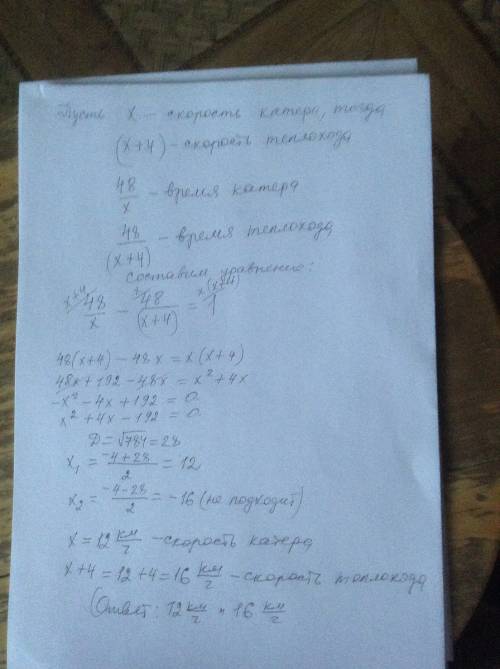 Пусть x – скорость катера, тогда
(x+4) – скорость теплохода
48/x – время катера
48/(x+4) – время теплохода
составим уравнение:
x+4 48/x – x 48/(x+4) = x(x+4) 1
48(x+4) – 48x = x(x+4)
48x+192–48x = x²+4x
–x²–4x+192 = 0
x²+4x–192 = 0
D = √784 = 28
x₁ = (–4+28)/2 = 12
x₂ = (–4–28)/2 = –16 (не подходит)
x = 12 км/ч – скорость катера
x+4 = 12+4 = 16 км/ч – скорость теплохода
Ответ: 12 км/ч и 16 км/ч